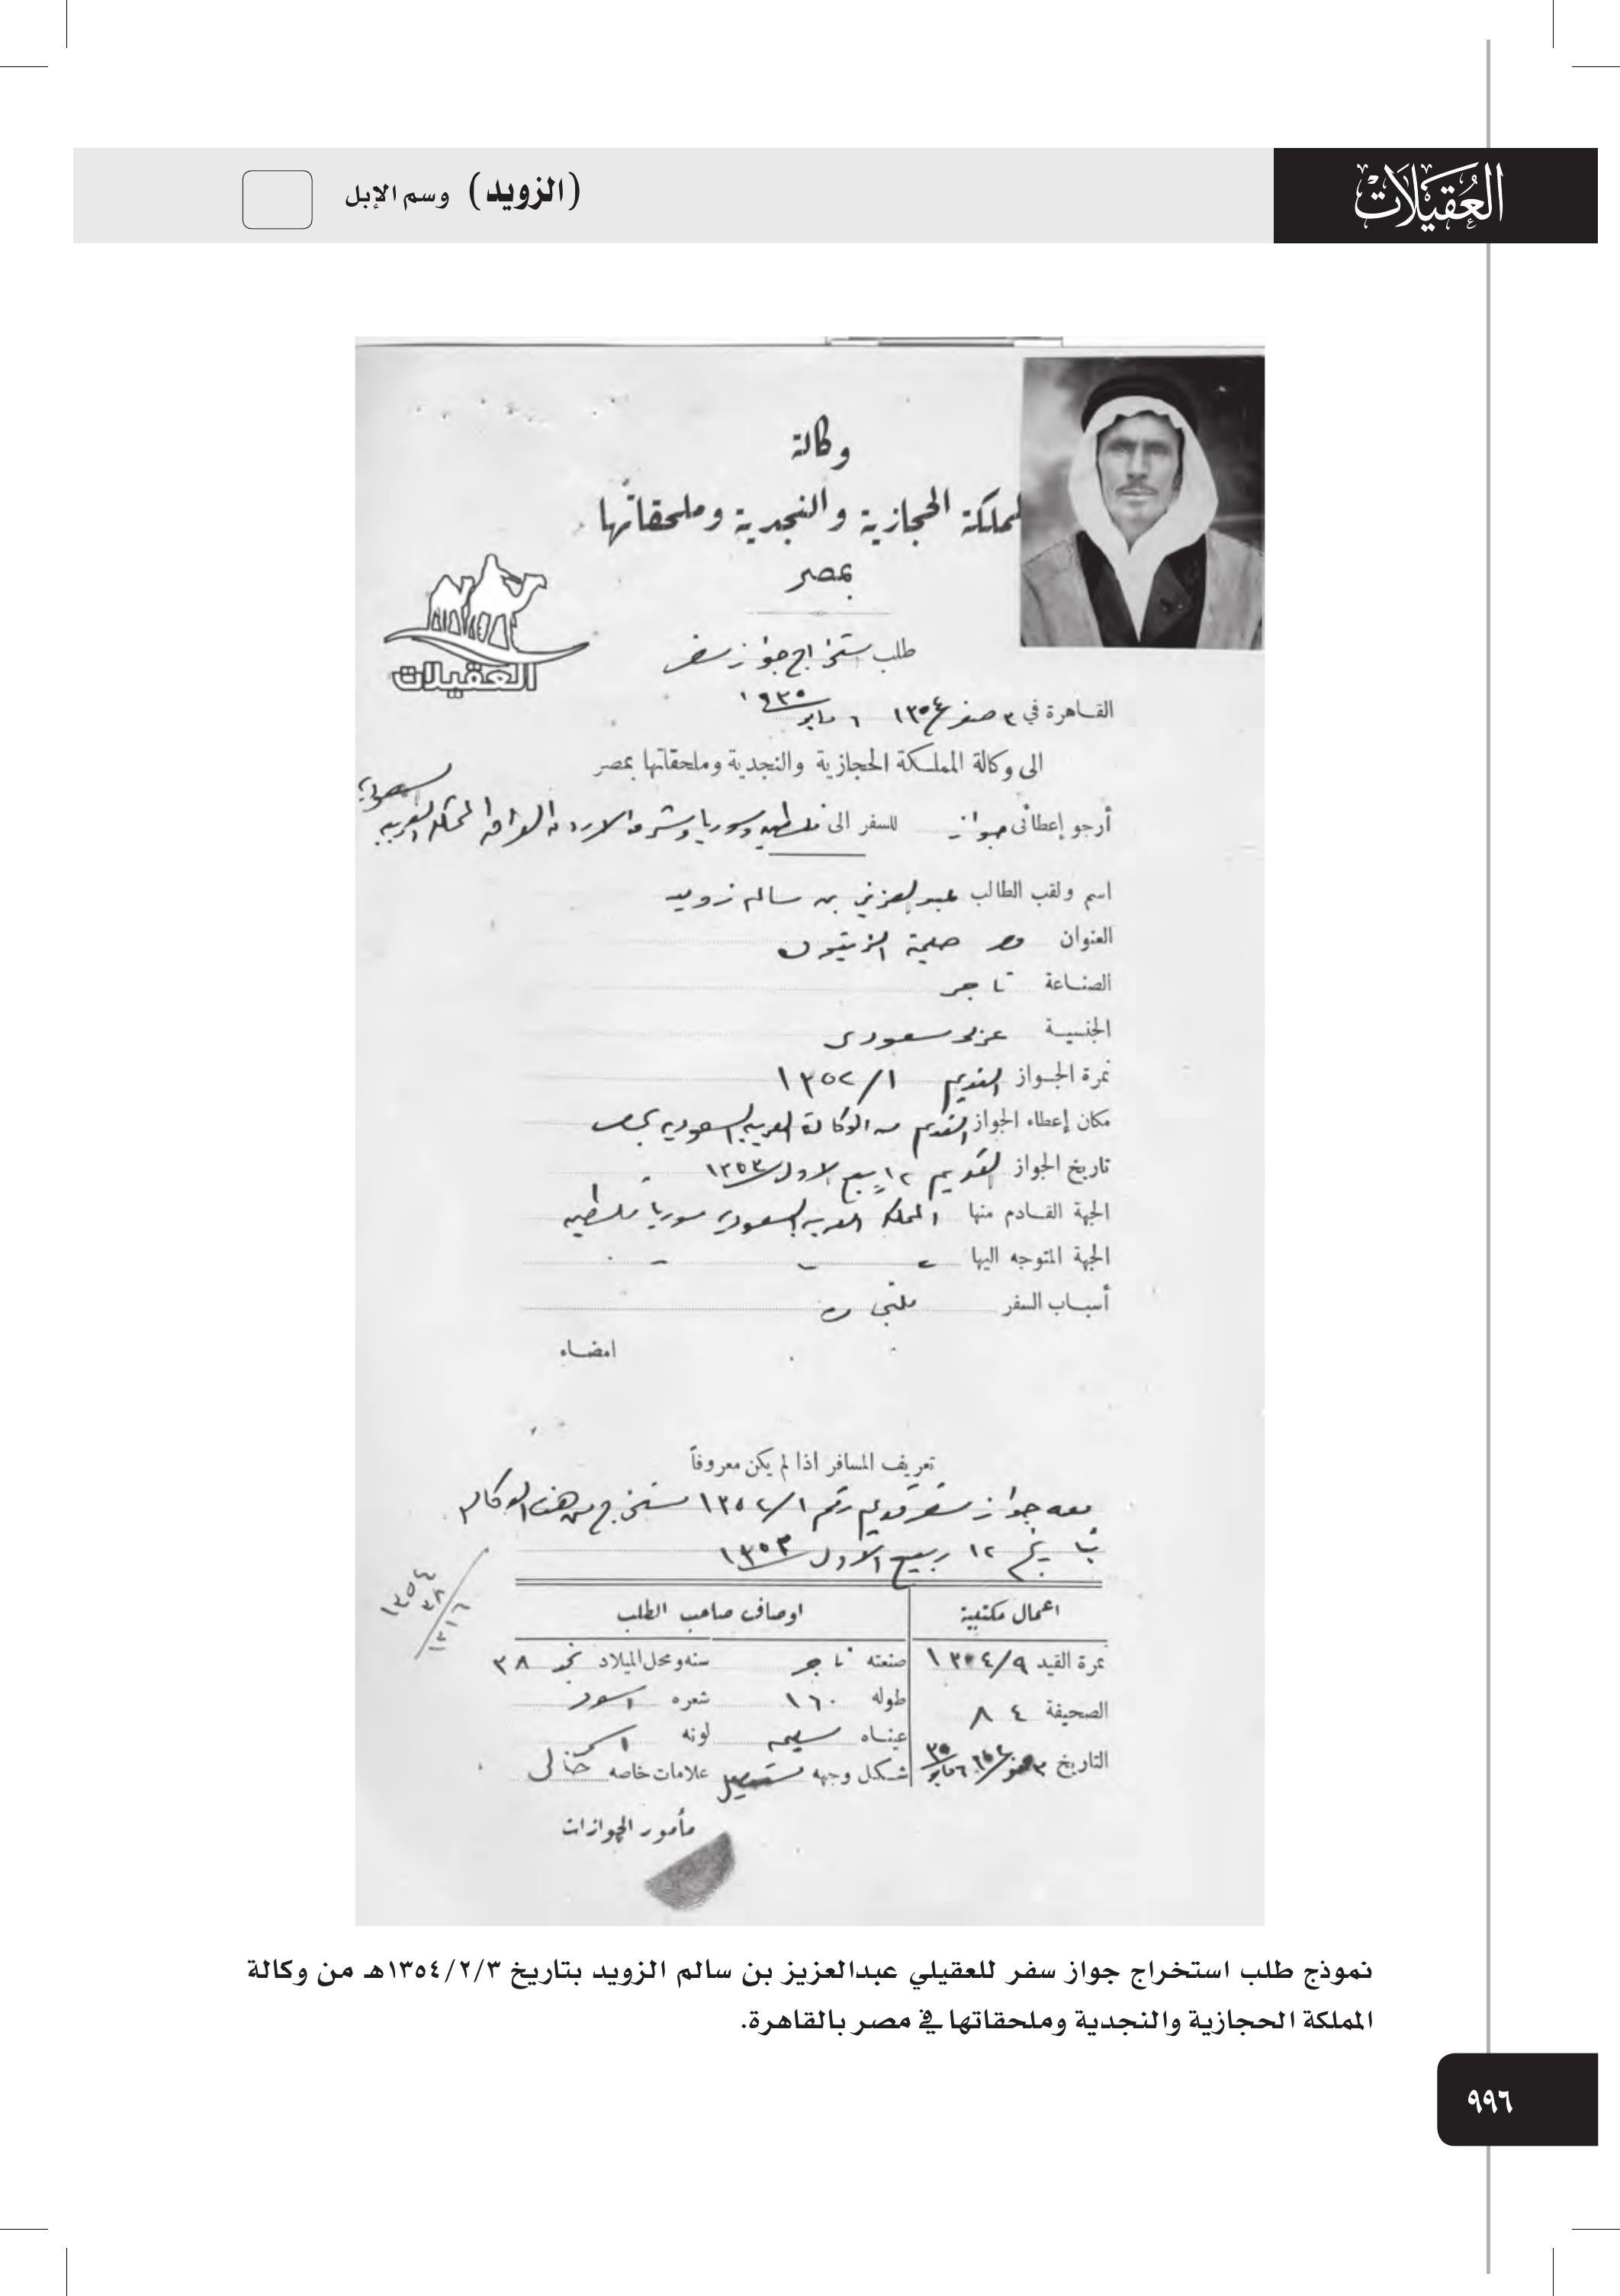 العُقَيْلَاتْ
(الزويد) وسم الإبل
وكالة
المملكة الحجازية والنجدية وملحقاتها
بمصر
العقيلات
طلب استخراج جواز سفر
القاهرة في ٣ صفر ١٣٥٤ ٦ مايو ١٩٣٥
الى وكالة المملكة الحجازية والنجدية وملحقاتها بمصر
أرجو إعطائى جواز للسفر الى فلسطين وسوريا وشرق الاردن العراق المملكة العربيه السعوديه
اسم ولقب الطالب عبدالعزيز بن سالم زويد
العنوان مصر حلمية الزيتون
الصناعة تاجر
الجنسية عربى سعودى
نمرة الجواز القديم ١/١٣٥٢
مكان إعطاء الجواز القديم من الوكالة العربيه السعوديه بمصر
تاريخ الجواز القديم ١٢ ربيع الاول ١٣٥٣
الجهة القادم منها المملكة العربيه السعوديه سوريا فلسطين
الجهة المتوجه اليها
أسباب السفر
امضاء
تعريف المسافر اذا لم يكن معروفاً
معه جواز سفر قديم رقم ١/١٣٥٢ مستخرج من هذه الوكاله
بتاريخ ١٢ ربيع الاول ١٣٥٣
اعمال مكتبية اوصاف صاحب الطلب
نمرة القيد ١٣٥٤/٩ صنعته تاجر سنه ومحل الميلاد نجد ٣٨
الصحيفة ٨٤ طوله ١٦٠ شعره اسود
عيناه سليمه لونه اسمر
التاريخ ٣ صفر ١٣٥٤ ٦ مايو ٣٥ شكل وجهه مستطيل علامات خاصه خالى
مأمور الجوازات
نموذج طلب استخراج جواز سفر للعقيلي عبدالعزيز بن سالم الزويد بتاريخ ١٣٥٤/٢/٣هـ من وكالة
المملكة الحجازية والنجدية وملحقاتها في مصر بالقاهرة.
٩٩٦